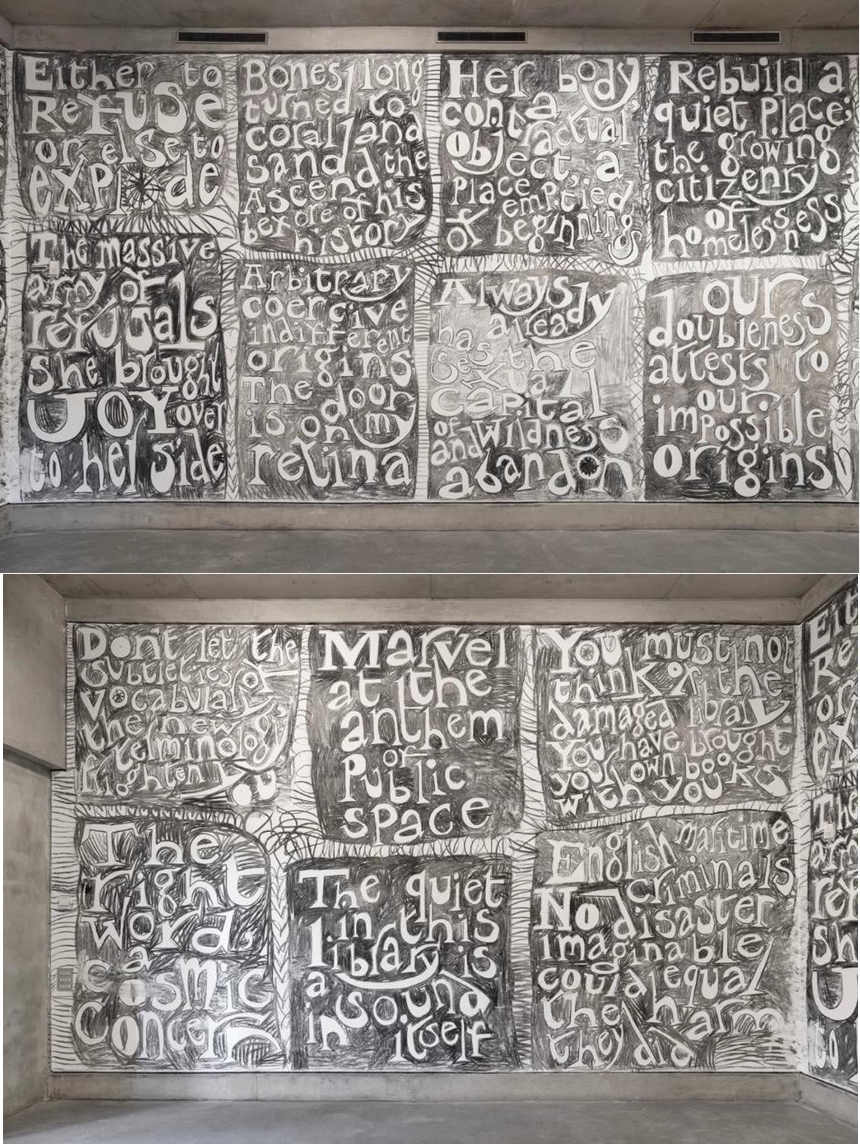 Either to
Refuse
or else to
explode
Bones long
turned to
coral and
sand the
Ascend
before of his
history
Her body
a
contractual
object, a
Place
emptied
of beginnings
Rebuild a
quiet Place,
the growing
citizenry
of
homelessness
The massive
array of
refusals
she brought
JOY over
to her side
Arbitrary
coercive
indifferent
origins
The door
is on my
retina
Always
has already
Sees the
capital
of
and wildness
abandon
our
doubleness
attests to
our
impossible
origins
Dont let the
subtleties
of
vocabulary
the new
terminology
frighten
you
Marvel
at the
anthem
of
Public
space
You must not
think of the
damaged library
You have brought
your own books
with you
The
right
word,
a
cosmic
concern
The quiet
in this
library is
a sound
in itself
English maritime
criminals
No disaster
imaginable
could equal
the harm
they did
Eit
Re
or
ex
The
arr
ref
sh
U
to